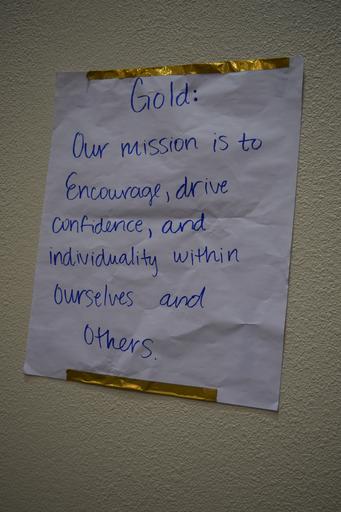 Gold:
Our mission is to
Encourage, drive
confidence, and
individuality within
Ourselves and
Others.